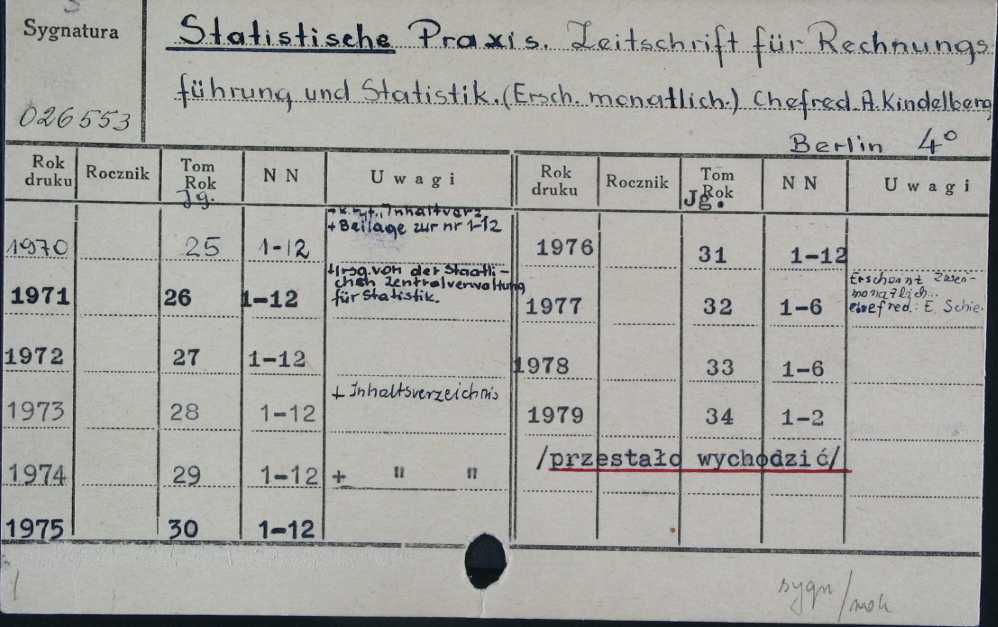 Sygnatura
026553
Statistische Praxis. Zeitschrift für Rechnungs
führung und Statistik. (Ersch. monatlich.) Chefred. A. Kindelberg
Berlin 4°
Rok druku Rocznik Tom Rok Jg. NN Uwagi Rok druku Rocznik Tom Rok Jg. NN Uwagi
1970 25 1-12 Inhaltverz.
+ Beilage zur nr 1-12
1971 26 1-12 von der Staatli-
chen Zentralverwaltung
für Statistik.
1972 27 1-12
1973 28 1-12 + Inhaltsverzeichnis
1974 29 1-12 + " "
1975 30 1-12
1976 31 1-12
1977 32 1-6 Erscheint
monatlich.
Chefred. E. Schie
1978 33 1-6
1979 34 1-2
/przestało wychodzić/
sygn/mok